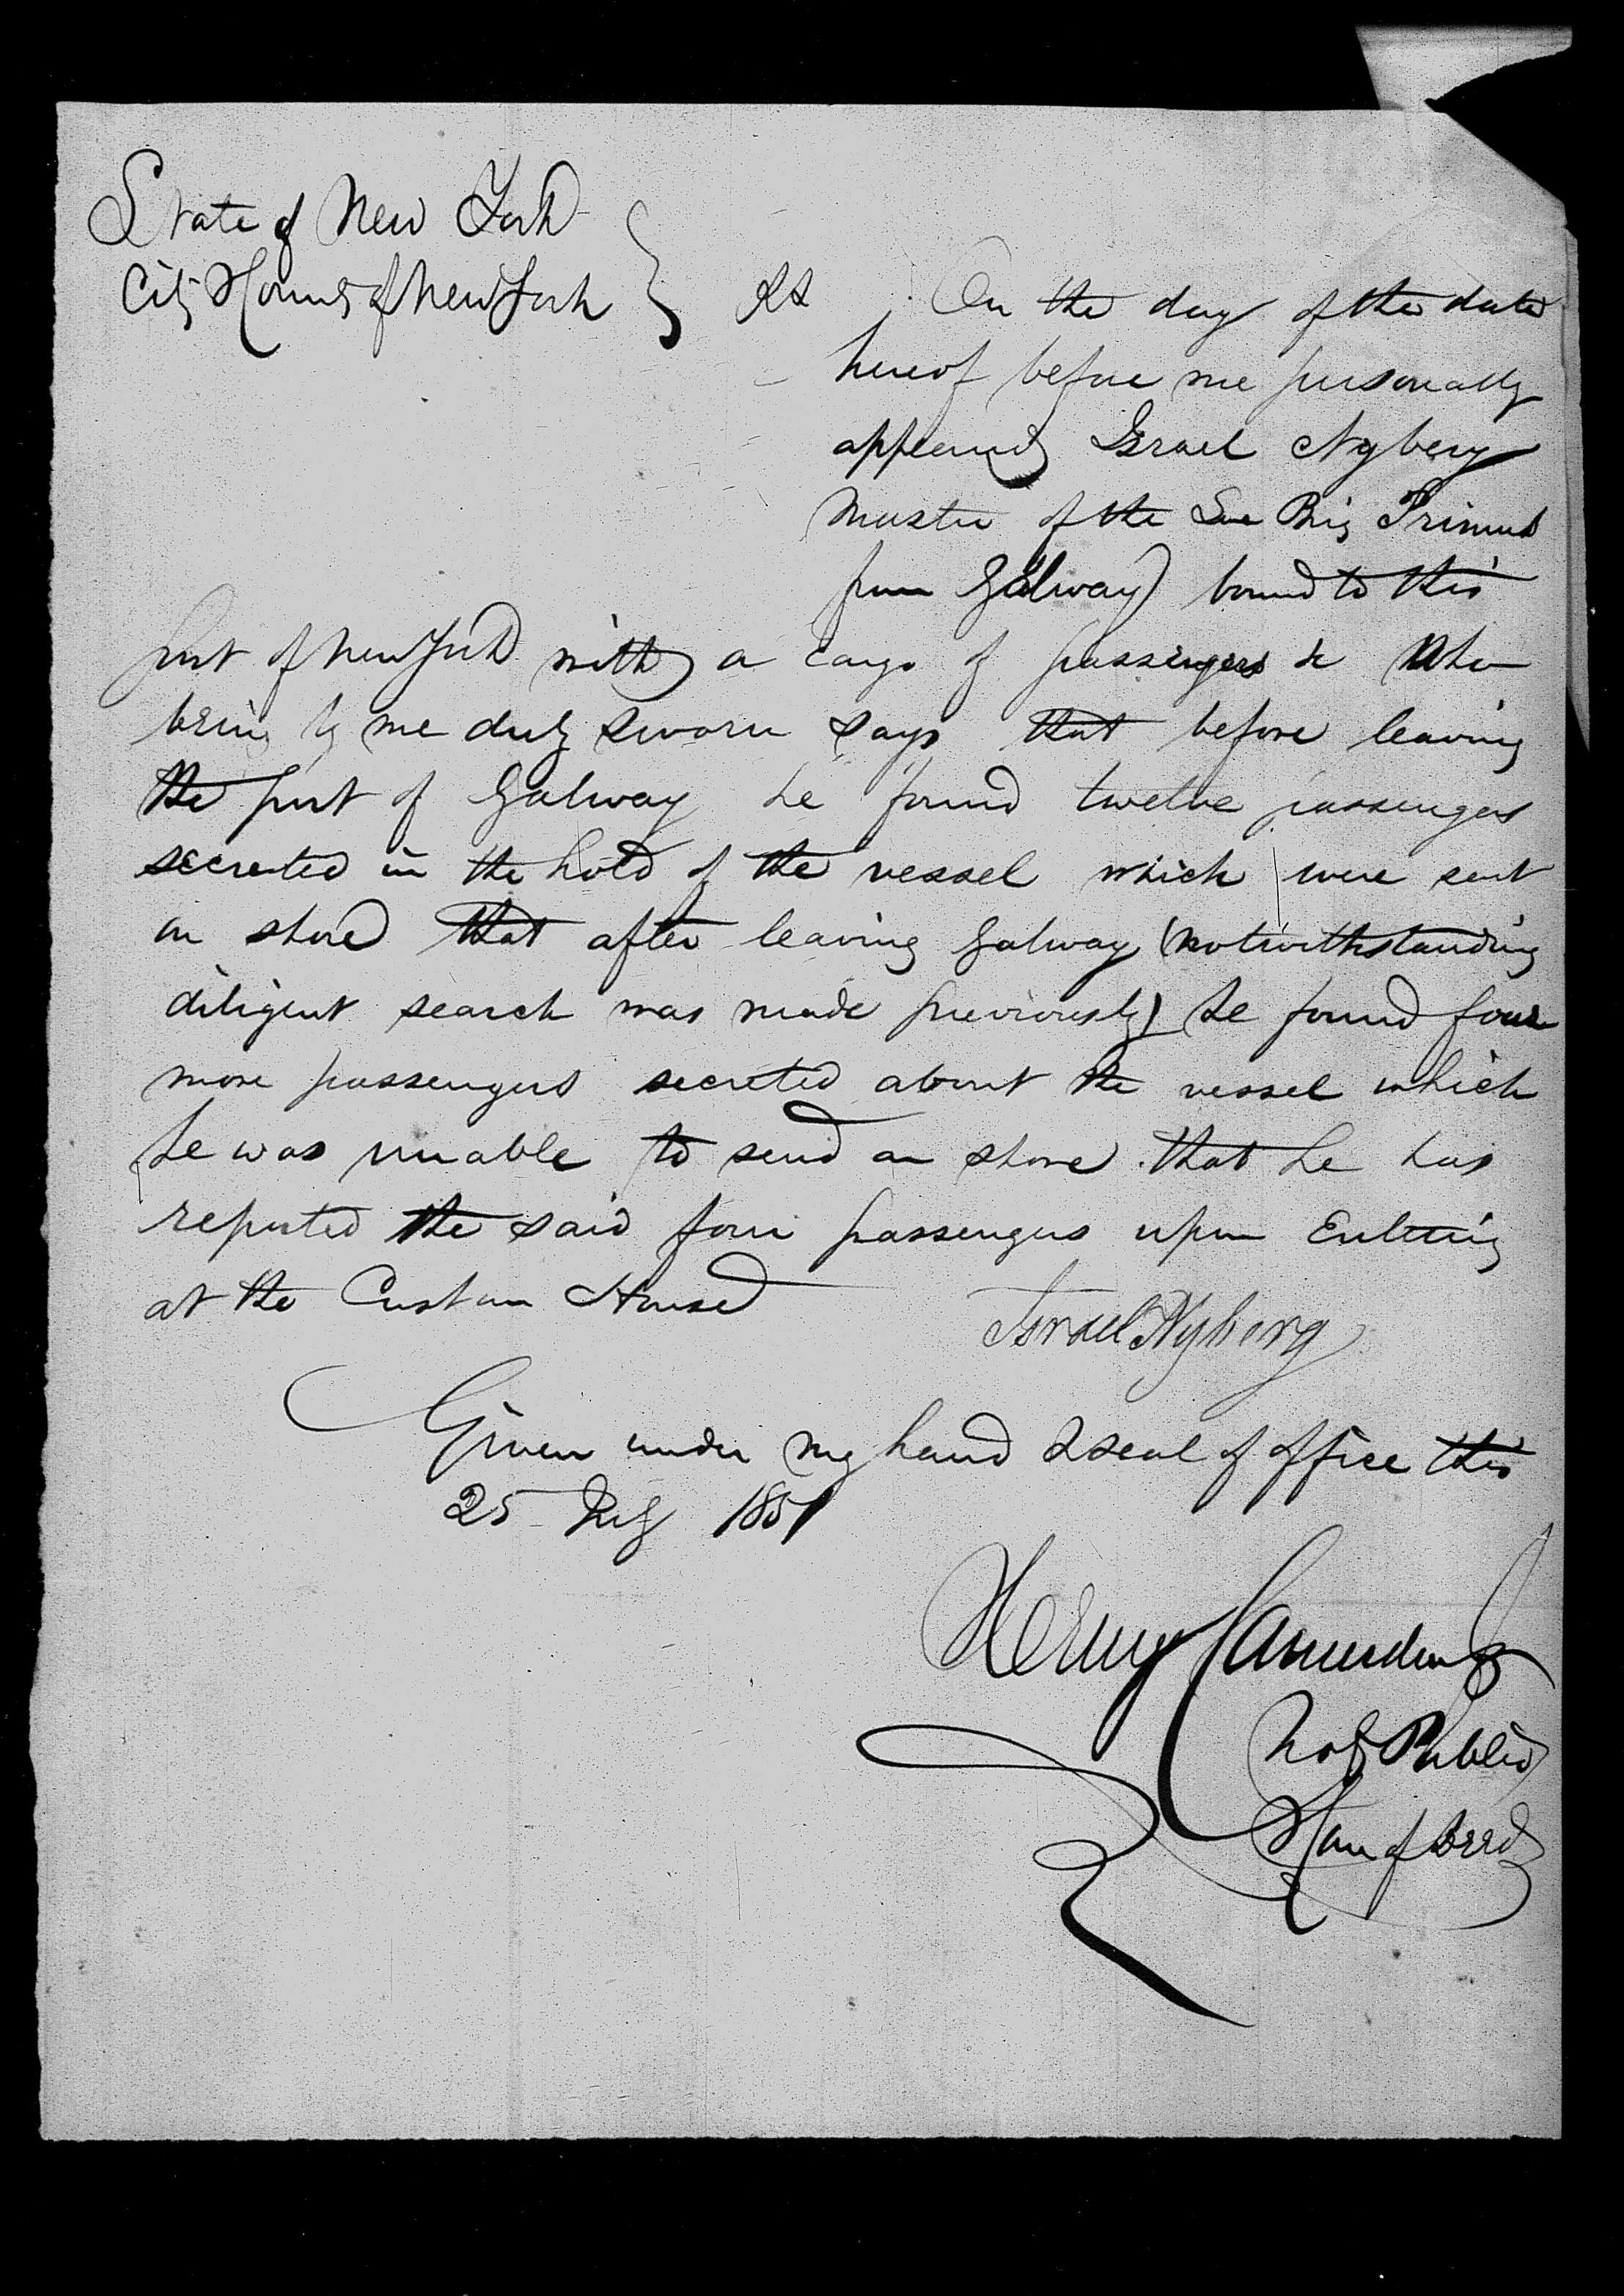 State of New York
City & County of New York } SS On the day of the date
hereof before me personally
appeared Israel Nyberg
Master of the Swe Brig Primus
from Galway bound to this
port of New York with a cargo of passengers & who
being by me duly sworn says that before leaving
the port of Galway he found twelve passengers
secreted in the hold of the vessel which were sent
on shore that after leaving Galway (notwithstanding
diligent search was made previously) he found four
more passengers secreted about the vessel which
he was unable to send on shore. that he has
reported the said four passengers upon Entering
at the Custom House
Israel Nyberg
Given under my hand & seal of office this
25 July 1851
Henry
Not Public